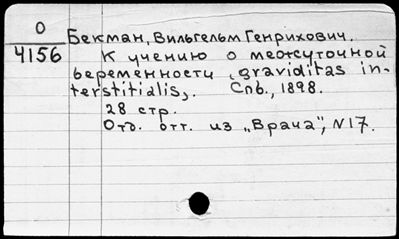 О
4156
Бекман, Вильгельм Генрихович.
К учению о межуточной
беременности „graviditas in-
terstitialis„. Спб., 1898.
28 стр.
Отд. отт. из „Врача", N17.